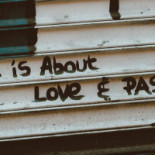 is About
Love & PAS